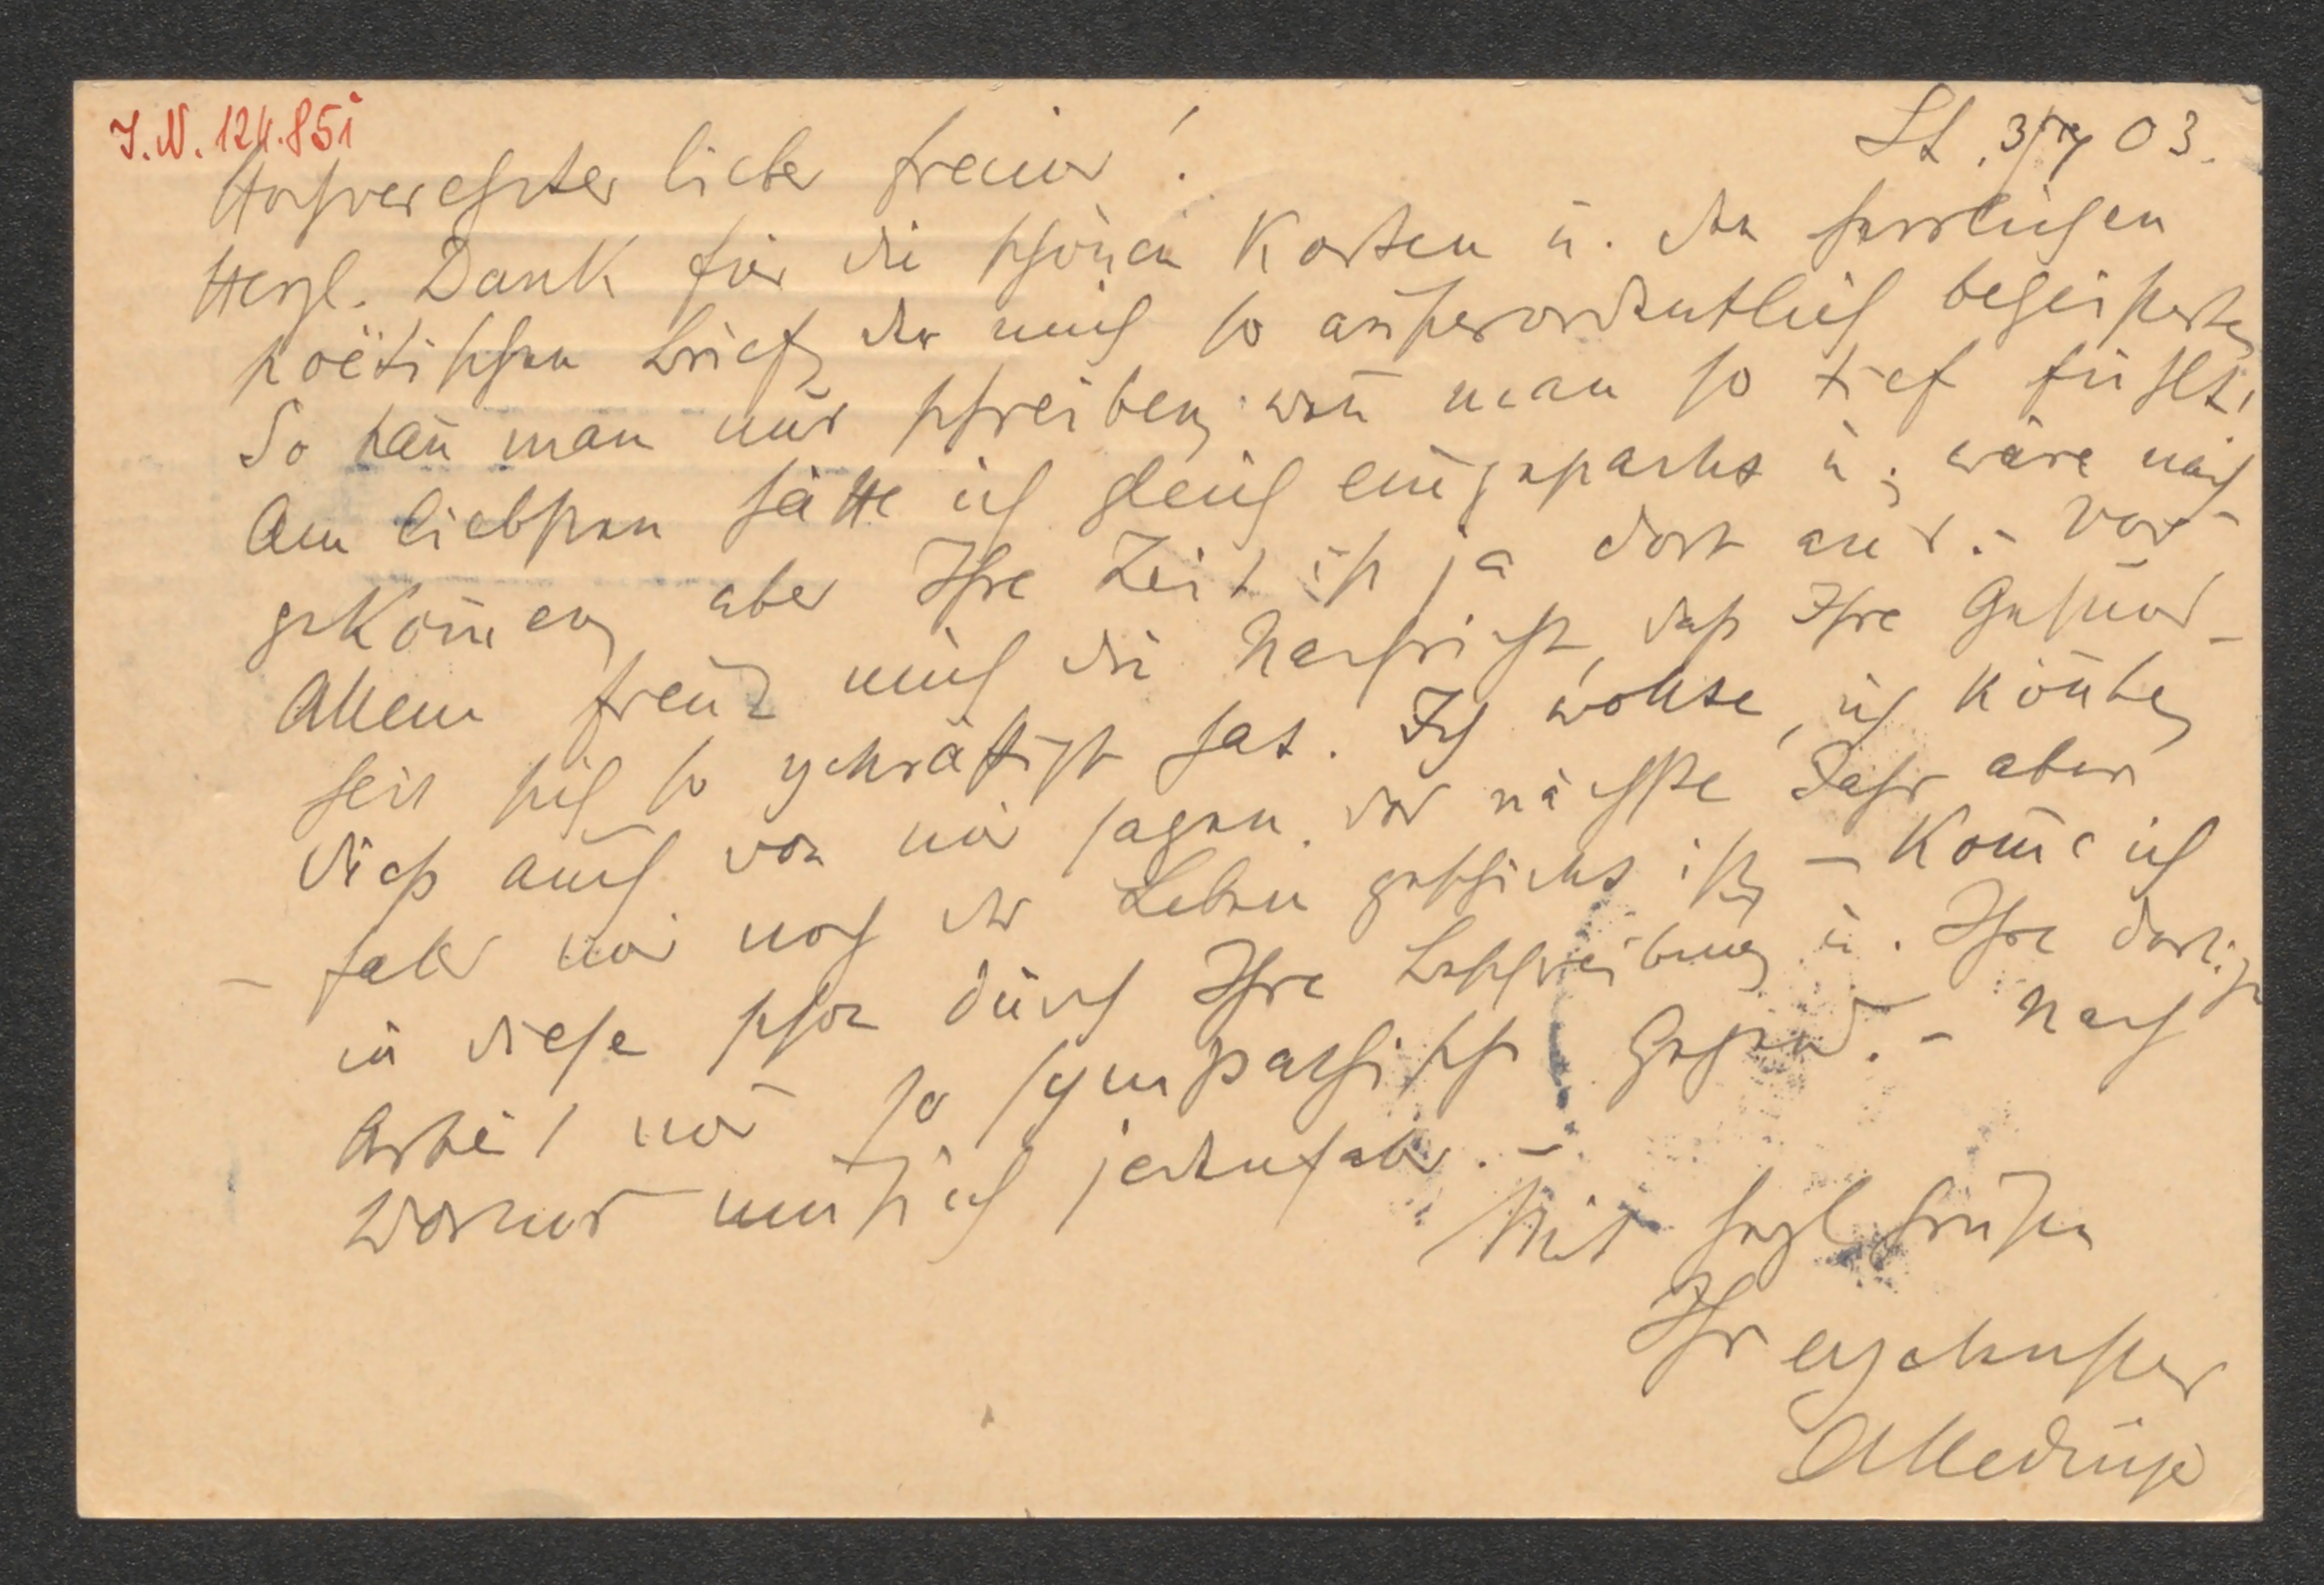 I. N. 124.851
St. 3/7 03.
Hochverehrter lieber Freund!
Herzl. Dank für die schönen Karten u. den herrlichen
poëtischen Brief, der mich so außerordentlich begeisterte,
So kañ man nur schreiben, weñ man so tief fühlt,
Am liebsten hätte ich gleich eingepackt u. wäre nach
gekom̄en, aber Ihre Zeit ist ja dort aus. – Vor
Allem freut mich die Nachricht, daß Ihre Gesund-
heit sich so gekräftigt hat. Ich wollte, ich köñte,
dieß auch von mir sagen. das nächste Jahr aber
– falls mir noch das Leben geschenkt ist, – Kom̄e ich
in diese schon durch Ihre Beschreibung u. Ihre dortige
Arbeit mir so sympathische Gegend. – Nach
muß ich jedenfalls. –
Mit herzl Grüßen
Ihr ergebenster